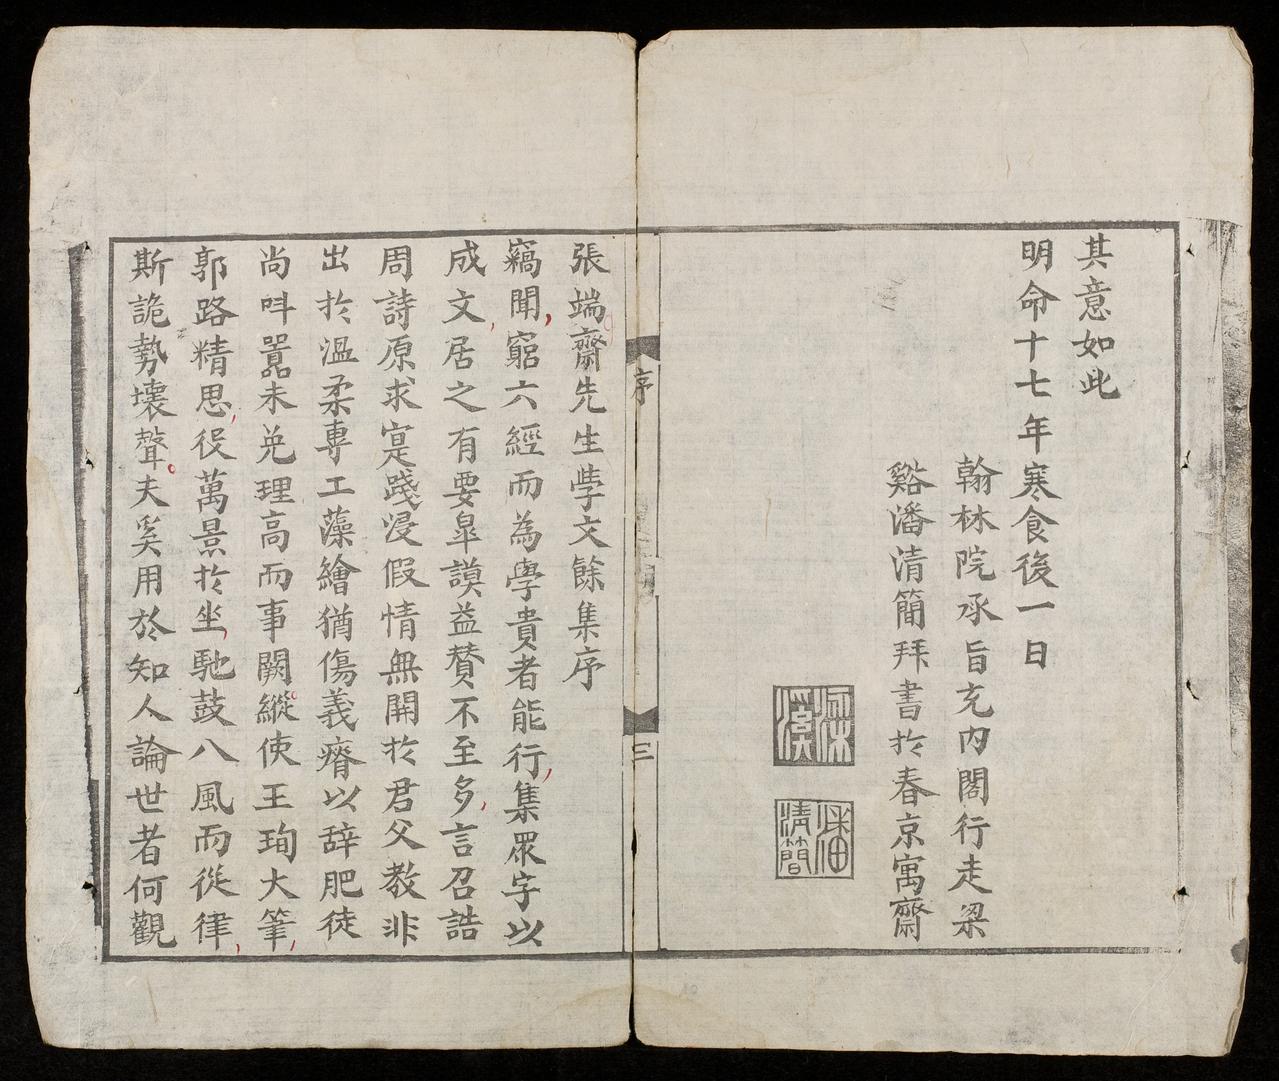 其意如此
明命十七年寒食後一日
翰林院承旨充內閣行走梁
谿潘清簡拜書於春京寓齋
梁溪
潘清簡
序
三
張端齋先生學文餘集序
竊聞窮六經而為學貴者能行集眾字以
成文居之有要皐謨益贊不至多言召誥
周詩原求寔踐浸假情無關於君父教非
出於溫柔專工藻繪猶傷義瘠以辞肥徒
尚呌嚣未免理高而事闕縱使王珣大筆
郭路精思役萬景於坐馳鼓八風而從律
斯詭勢壞聲夫奚用於知人論世者何觀